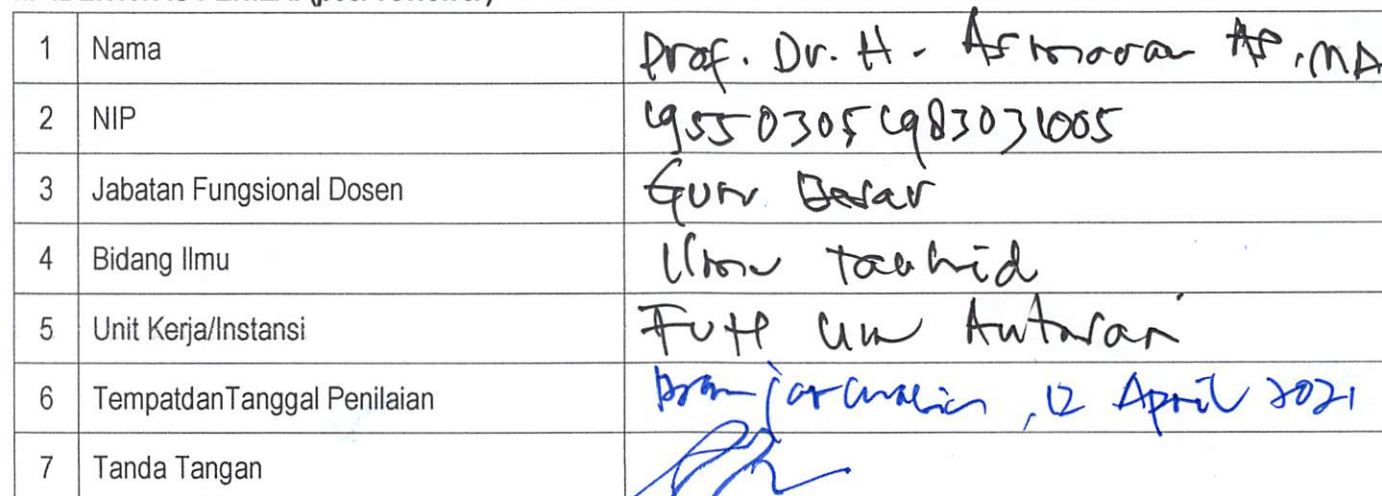 (peer reviewer)
1 Nama Prof. Dr. H. Asmaran AS, MA
2 NIP 195503051983031005
3 Jabatan Fungsional Dosen Guru Besar
4 Bidang Ilmu Ilmu tauhid
5 Unit Kerja/Instansi FUH UIN Antasari
6 TempatdanTanggal Penilaian Banjarmasin, 12 April 2021
7 Tanda Tangan